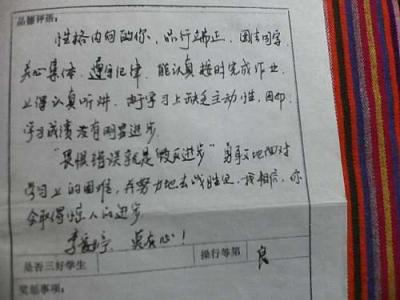 品德评语:
性格内向的你，品行端正，团结同学，
关心集体，遵守纪律，能认真按时完成作业，
上课认真听讲，由于学习上缺乏主动性，因而，
学习成绩没有明显进步。
"畏惧错误就是毁灭进步" 勇敢地面对
学习上的困难，并努力地去战胜它，我相信，你
会取得惊人的进步。
李 贵在心！
是否三好学生
操行等第 良
奖惩事项: